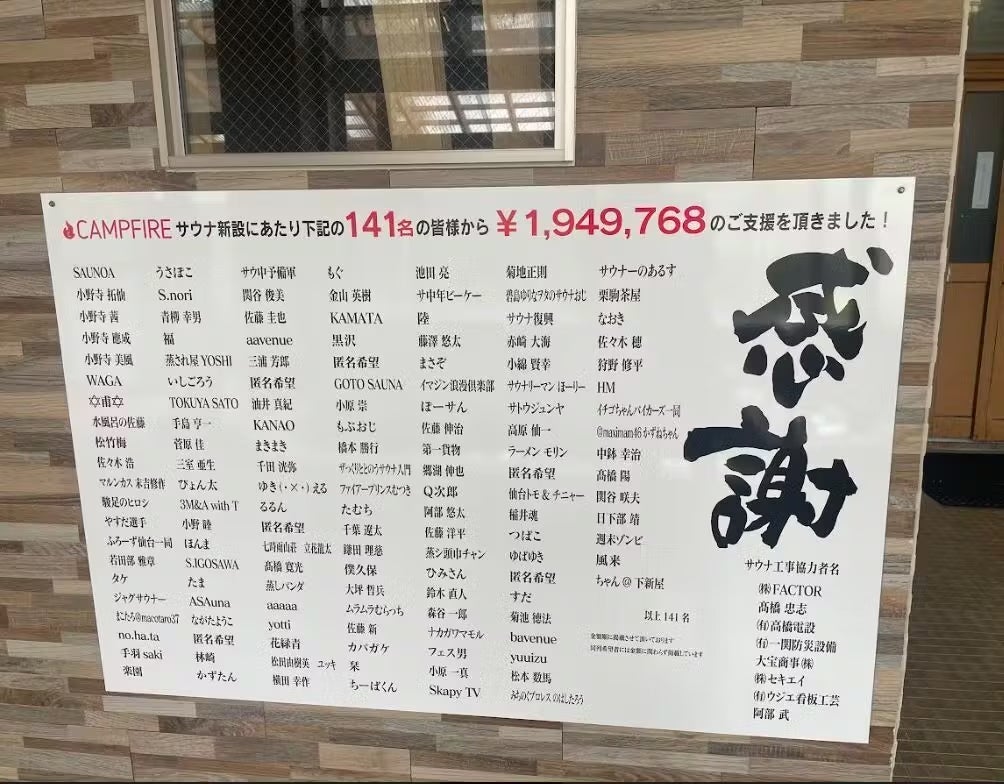 CAMPFIRE サウナ新設にあたり下記の141名の皆様から ¥1,949,768 のご支援を頂きました！
SAUNOA
小野寺 拓仙
小野寺 茜
小野寺 應成
小野寺 美風
WAGA
✡甫✡
水風呂の佐藤
松竹梅
佐々木 浩
マルンカス 末吉修作
駿足のヒロシ
やすだ選手
ふろーず仙台一同
若田部 雅章
タケ
ジャグサウナー
まこたろ@macotaro37
no.ha.ta
手羽 saki
楽園
うさぽこ
S.nori
青栁 幸男
福
蒸され屋 YOSHI
いしごろう
TOKUYA SATO
手島 亨一
菅原 佳
三室 亜生
ぴょん太
3M&A with T
小野 睦
ほんま
S.IGOSAWA
たま
ASAuna
ながたようこ
匿名希望
林崎
かずたん
サウ中予備軍
関谷 俊美
佐藤 圭也
aavenue
三浦 芳郎
匿名希望
油井 真紀
KANAO
まきまき
千田 洸弥
ゆき(・×・)える
るるん
匿名希望
七時雨山荘 立花龍太
髙橋 寛光
蒸しパンダ
aaaaa
yotti
花緑青
松田由樹英 ユッキ
横田 幸作
もぐ
金山 英樹
KAMATA
黒沢
匿名希望
GOTO SAUNA
小原 崇
もぶおじ
橋本 勝行
ざっくりととのうサウナ入門
ファイアープリンスむつき
たむち
千葉 遼太
鎌田 理慈
僕久保
大坪 哲兵
ムラムラむらっち
佐藤 新
カバガケ
栞
ちーばくん
池田 亮
サ中年ビーケー
陸
藤澤 悠太
まさぞ
イマジン浪漫倶楽部
ぽーサん
佐藤 伸治
第一貨物
郷湖 伸也
Q次郎
阿部 悠太
佐藤 洋平
蒸シ頭巾チャン
ひみさん
鈴木 直人
森谷 一郎
ナカガワマモル
フェス男
小原 一真
Skapy TV
菊地正則
碧島ゆりなヲタのサウナおじ
サウナ復興
赤崎 大海
小綿 賢幸
サウナリーマン ほーリー
サトウジュンヤ
高原 仙一
ラーメン モリン
匿名希望
仙台トモ & チニャー
稲井魂
つばこ
ゆばゆき
匿名希望
すだ
菊池 徳法
bavenue
yuuizu
松本 数馬
みちのくプロレス のはしたろう
サウナーのあるす
栗駒茶屋
なおき
佐々木 穂
狩野 修平
HM
イチゴちゃんバイカーズ一同
@maximam46 かずねちゃん
中鉢 幸治
髙橋 陽
関谷 咲夫
日下部 靖
週末ゾンビ
風来
ちゃん @ 下新屋
以上 141 名
金額順に掲載させて頂いております
同列希望者には金額に関わらず掲載しています
感謝
サウナ工事協力者名
㈱FACTOR
髙橋 忠志
㈲髙橋電設
㈲一関防災設備
大宝商事㈱
㈱セキエイ
㈲ウジエ看板工芸
阿部 武